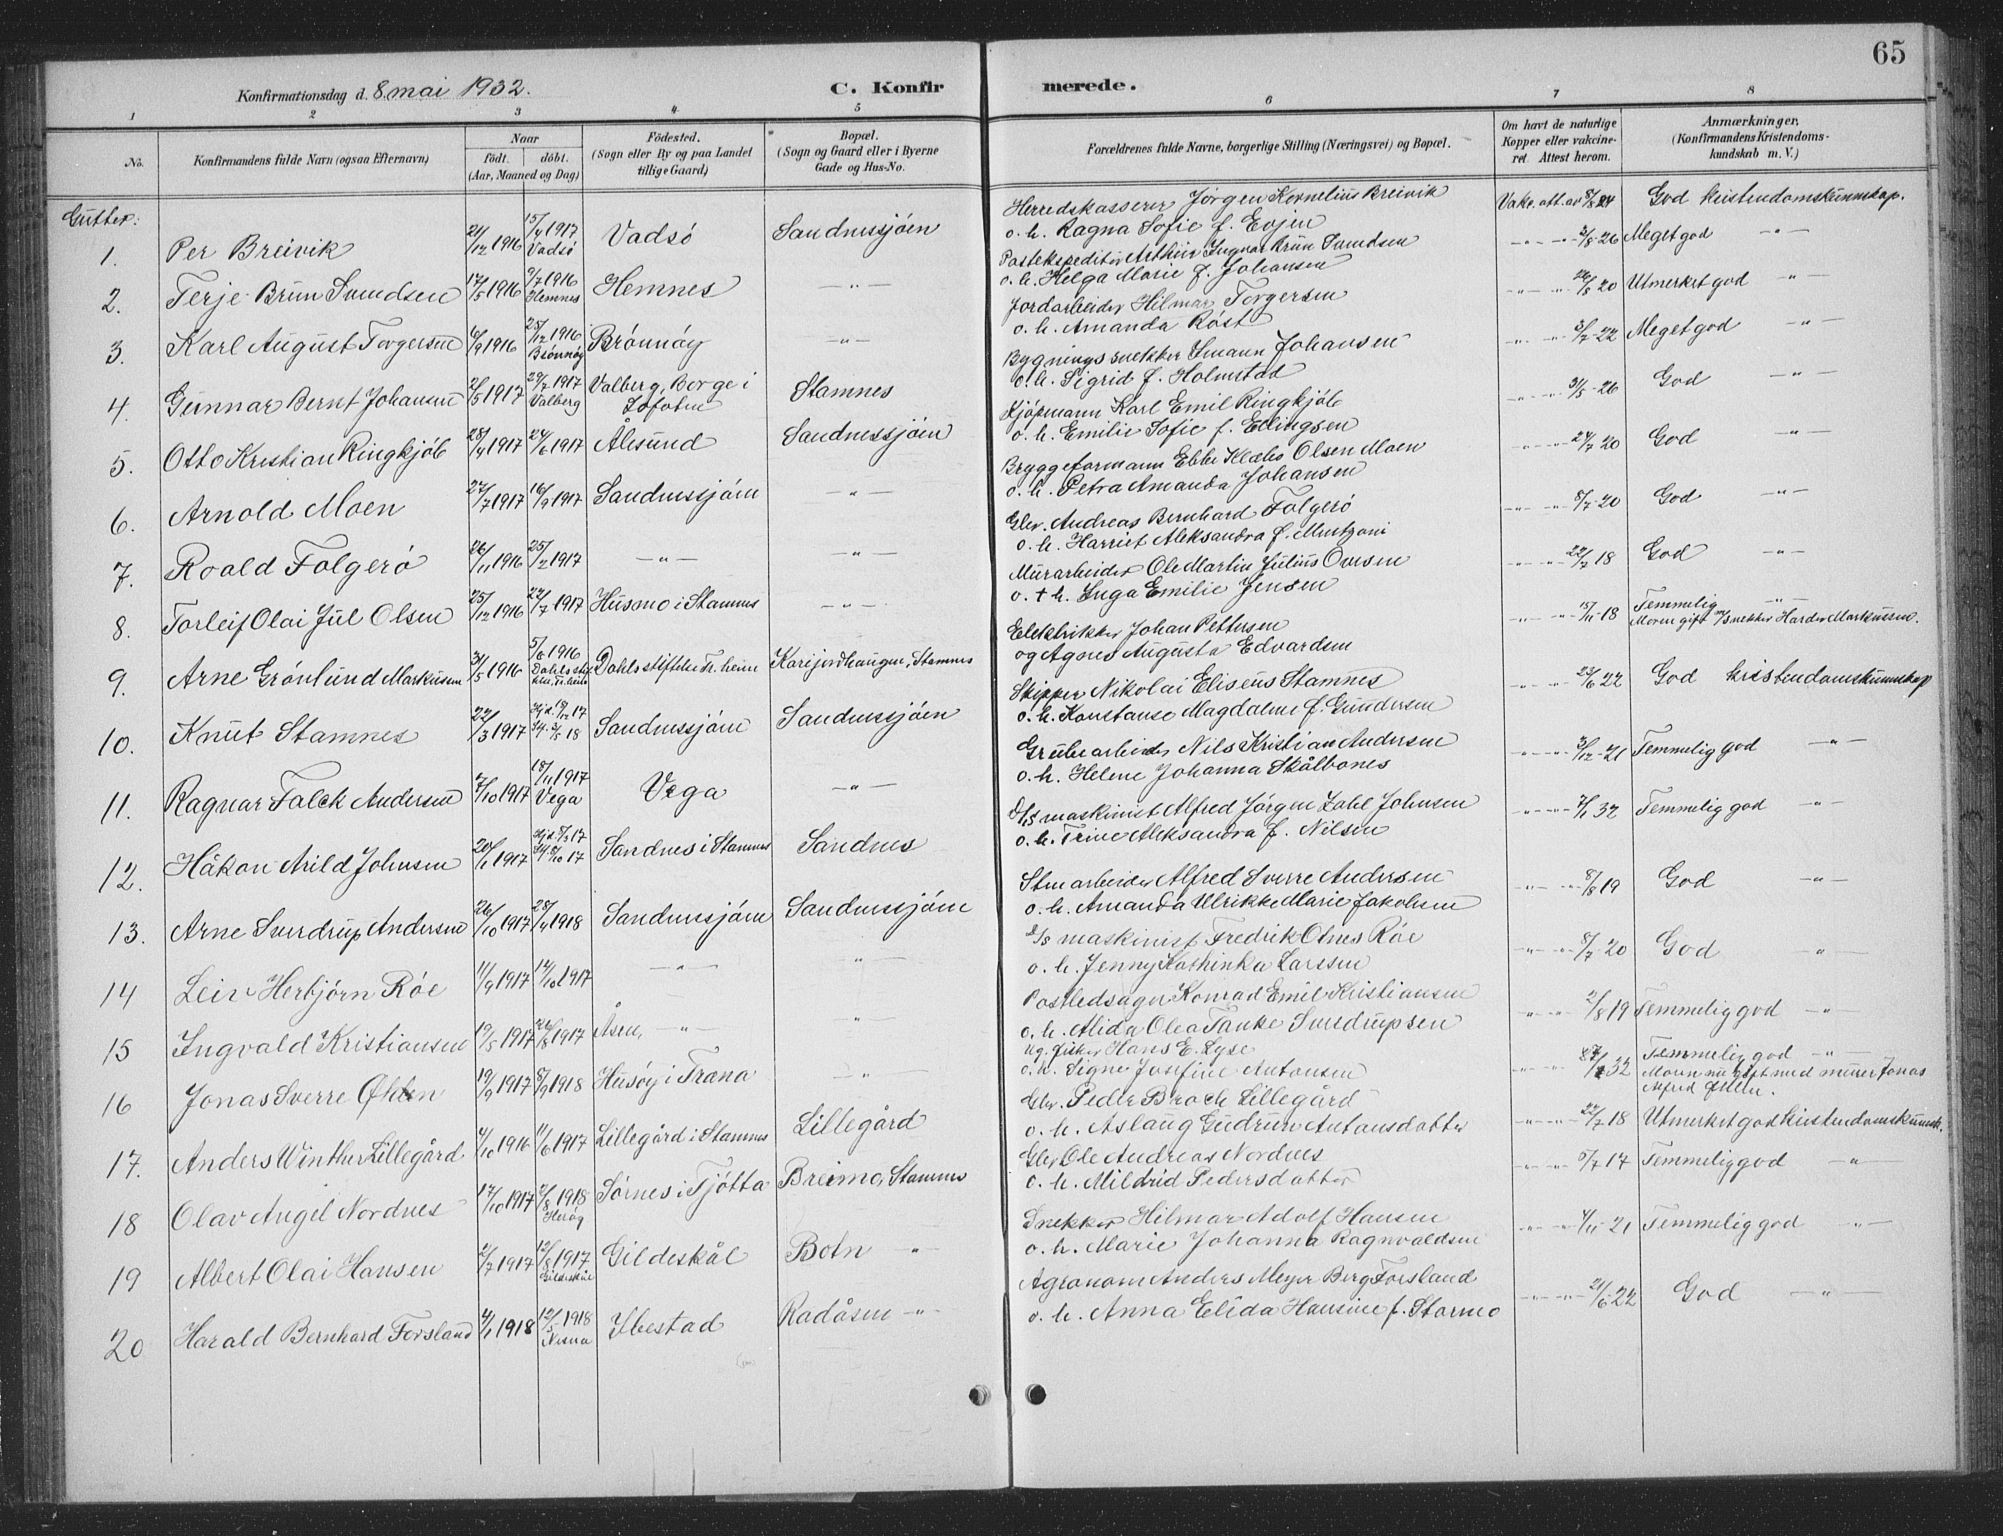 65
Konfirmationsdag d. 8 mai 1932.
C. Konfirmerede.
1 2 3 4 5 6 7 8
No.
Konfirmandens fulde Navn (ogsaa Efternavn)
Naar
født. døbt.
(Aar, Maaned og Dag)
Fødested.
(Sogn eller By og paa Landet
tillige Gaard)
Bopæl.
(Sogn og Gaard eller i Byerne
Gade og Hus-No.
Forældrenes fulde Navne, borgerlige Stilling (Næringsvei) og Bopæl.
Om havt de naturlige
Kopper eller vakcine-
ret. Attest herom.
Anmærkninger,
(Konfirmandens Kristendoms-
kundskab m. V.)
Gutter:
1. Per Breivik 21/12 1916 15/4 1917 Vadsö Vadsö Sandnessjöen
Herredskasserer Jörgen Kornelius Breivik
o. h. Ragna Sofie f. Evjen
Vakc. att. av 5/8 24 God kristendomskunnskap.
2. Terje Brun Svendsen 17/5 1916 9/7 1916 Hemnes Hemnes — " —
Postekspeditör Arthur Ingvar Brun Svendsen
o. h. Helga Marie f. Johansen
— " — " — 3/8 - 26 Meget god — " —
3. Karl August Torgersen 6/9 1916 25/12 1916 Brönnöy Brönnöy — " —
Jordarbeider Hilmar Torgersen
o. h. Amanda Röst
— " — " — 26/8 20 Utmerket god — " —
4. Gunnar Bernt Johansen 21/5 1917 29/7 1917 Valberg Valberg, Borge i Lofoten Stamnes
Bygningssnekker Johansen
o. h. Sigrid f. Holmstad
— " — " — 3/7 - 22 Meget god — " —
5. Otto Kristian Ringkjöb 28/4 1917 24/6 1917 Ålesund Sandnessjöen
Kjöpmann Karl Emil Ringkjöb
o. h. Emilie Sofie f. Ellingsen
— " — " — 31/5 - 26 God — " —
6. Arnold Moen 27/7 1917 16/9 1917 Sandnessjöen — " —
Bryggeformann Ebbe Klæbo Olsen Moen
o. h. Petra Amanda Johansen
— " — " — 24/7 20 God — " —
7. Roald Folgerö 26/11 1916 25/2 1917 — " — — " —
Gbr. Andreas Bernhard Folgerö
o. h. Harriet Aleksandra f. Muntzoni
— " — " — 8/7 - 20 God — " —
8. Torleif Olai Jul Olsen 25/12 1916 22/7 1917 Husmo i Stamnes — " —
Murarbeider Ole Martin Julius Ovesen
o. + h. Inga Emilie Jensen
— " — " — 22/7 18 God — " —
9. Arne Grönlund Markussen 31/5 1916 5/6 1916 Dahls stiftelse Tr. heim Karijordhaugen, Stamnes
Elektrikker Johan Pettersen
og Agnes Augusta Edvardsen
— " — " — 15/11 - 18 Temmelig — " —
Moren gift m/snekker Harder Markussen.
10. Knut Stamnes 22/3 1917 Hjd. 19/12 17 Sandnessjöen Sandnessjöen
Skipper Nikolai Eliseus Stamnes
o. h. Konstanse Magdalene f. Gundersen
— " — " — 23/6 22 God kristendomskunnskap
11. Ragnar Falck Andersen 7/10 1917 18/11 1917 Vega Vega — " —
Grubearbeider Nils Kristian Andersen
o. h. Helene Johanna Skålbones
— " — " — 3/12 - 21 Temmelig god — " —
12. Håkon Arild Johnsen 20/1 1917 Sandnes i Stamnes Sandnes
D/s maskinist Alfred Jörgen Zahl Johnsen
o. h. Trine Aleksandra f. Nilsen
— " — " — 7/1 32 Temmelig god — " —
13. Arne Sverdrup Andersen 26/10 1917 28/4 1918 Sandnessjöen Sandnessjöen
Stenarbeider Alfred Sverre Andersen
o. h. Amanda Ulrikke Marie Jakobsen
— " — " — 8/8 19 God — " —
14 Leiv Herbjörn Röe 11/9 1917 14/10 1917 — " — — " —
D/s maskinist Fredrik Otnes Röe
o. h. Jenny Kathinka Larssen
— " — " — 8/7 20 God "
15 Ingvald Kristiansen 19/5 1917 26/8 1917 Åsen, — " — "
Postledsager Konrad Emil Kristiansen
o. h. Alida Olea Tanke Sverdrupsen
— " — " — 2/8 19 Temmelig god — " —
16 Jonas Sverre Ølden 19/9 1917 8/9 1918 Husöy i Træna "
Ug. fisker Hans E. Lyse
o. h. Signe Josefine Antonsen
— " — " — 32 Temmelig god — " —
Moren nu gift med murer Jonas
Alfred Ølden.
17. Anders Winther Lillegård 4/10 1916 11/6 1917 Lillegård i Stamnes Lillegård
Gbr. Peder Broch Lillegård
o. h. Aslaug Gudrun Antonsdatter
— " — " — 22/7 18 Utmerket god kristendomskunnsk.
18 Olav Angel Nordnes 17/10 1917 2/8 1918 Heröy Sörnes i Tjötta Breimo, Stamnes
Gbr Ole Andreas Nordnes
o. h. Mildrid Pedersdatter
— " — " — 5/7 17 Temmelig god — " —
19 Albert Olai Hansen 2/7 1917 12/8 1917 Gildeskål Gildeskål Botn — " —
Snekker Hilmar Adolf Hansen
o. h. Marie Johanna Ragnvaldsen
— " — " — 4/11 - 21 Temmelig god — " —
20 Harald Bernhard Forsland 4/1 1918 12/5 1918 Nesna Ibestad Radåsen — " —
Agronom Anders Meyer Berg Forsland
o. h. Anna Elida Hansine f. Stormo
— " — " — 21/6 - 22 God — " —